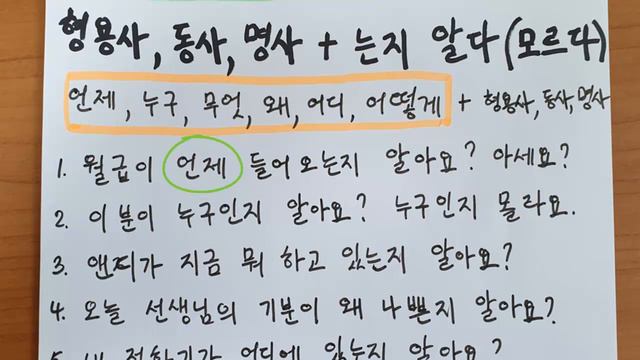 형용사, 동사, 명사 + 는지 알다(모르다)
언제, 누구, 무엇, 왜, 어디, 어떻게 + 형용사, 동사, 명사
1. 월급이 언제 들어오는지 알아요? 아세요?
2. 이분이 누구인지 알아요? 누구인지 몰라요.
3. 앤디가 지금 뭐 하고 있는지 알아요?
4. 오늘 선생님의 기분이 왜 나쁜지 알아요?
5. 내 전화기가 어디에 있는지 알아요?